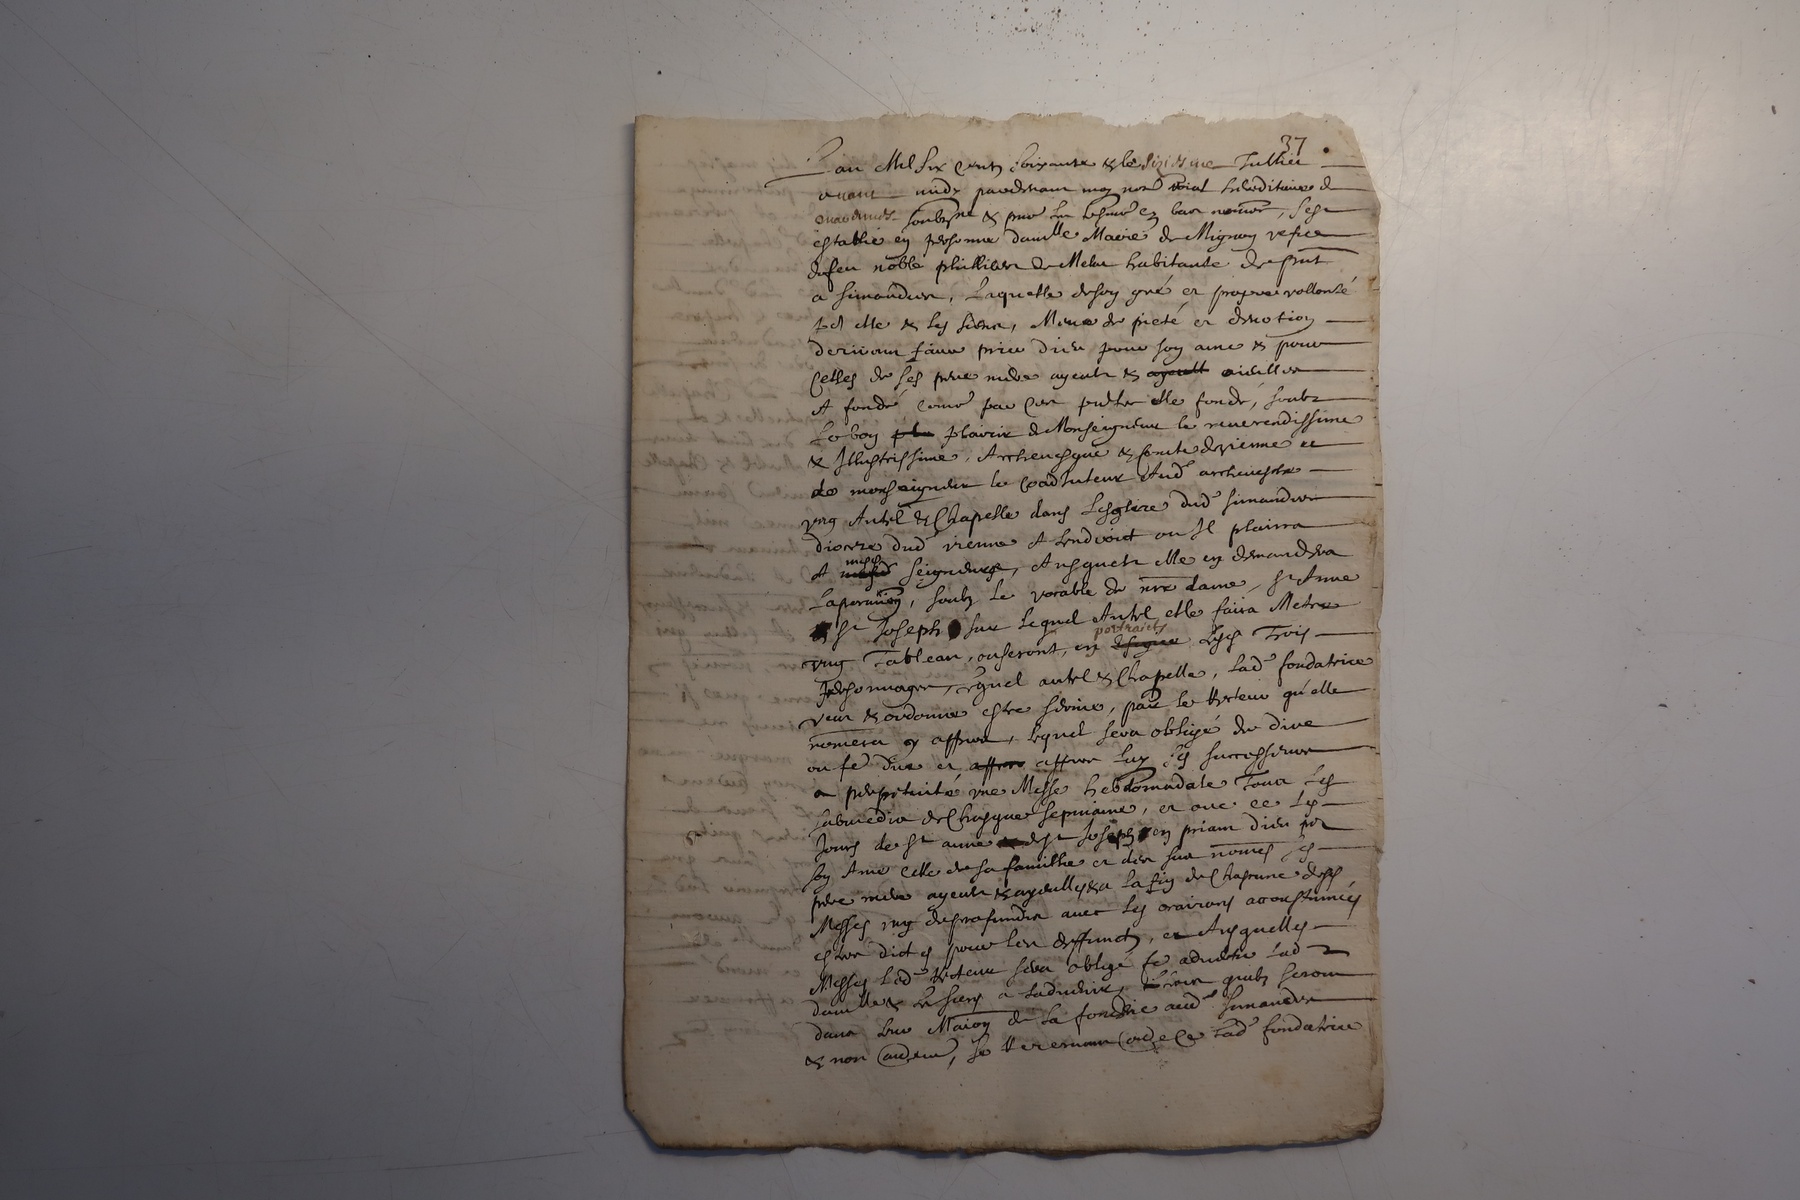 37
L'an Mil six centz soixante & le dixiesme Juillet
avant midy pardevant moy nore roial hereditaire
soubzne & pnt les tesmoins en bas nommés, sest
establie en personne damlle Marie de Mignon refve
de feu noble phillibert de Melat habitante de pnt
a Simandres, Laquelle de son gré et propre vollonté
pr elle & les siens, Meue de pieté et devotion
desirant faire prier Dieu pour son ame & pour
Celles de ses pere mere ayeulx & ayeulles
A fondé come par ces pntes elle fonde, soubz
Le bon plaisir de Monseigneur le reverendissime
& Illustrissime Archevesque & Comte de Vienne et
de monseigneur le Coadjuteur dud archevesche
ung Autel & Chapelle dans L'esglize dud Simandres
dioceze dud vienne A lendroict ou Il plairra
A mesd Seigneurs, Ausquels elle en demandera
La permion, soubz le vocable de nre dame, St Anne
& St Joseph sur lequel Autel elle faira Metre
ung Tableau, ou seront, en portraicts Lesd Trois
Personnages, lequel autel & Chapelle, Lad fondatrice
veut & ordonne estre servie, par le Recteur qu'elle
nomera cy apres, lequel sera obligé de dire
ou fe dire et apres luy ses successeurs
a perpetuité une Messe hebdomadale Tous les
sabmedis de Chasque sepmaine, et ce les
Jours de St anne & de St Joseph en priant Dieu pr
son Ame celle de sa famille et des sus només ses
pere mere ayeulx & ayeulles & a la fin de Chascune desd
Messes ung de profundis avec les oraisons accoustumées
estre dictes pour les deffuncts, et Ausquelles
Messes Led Recteur sera obligé fe advertir Lad
damlle & les siens a Ladvenir, quils seront
dans leur Maison de la fonderie aud Simandres
& non autremt, Se Reservant lad fondatrice